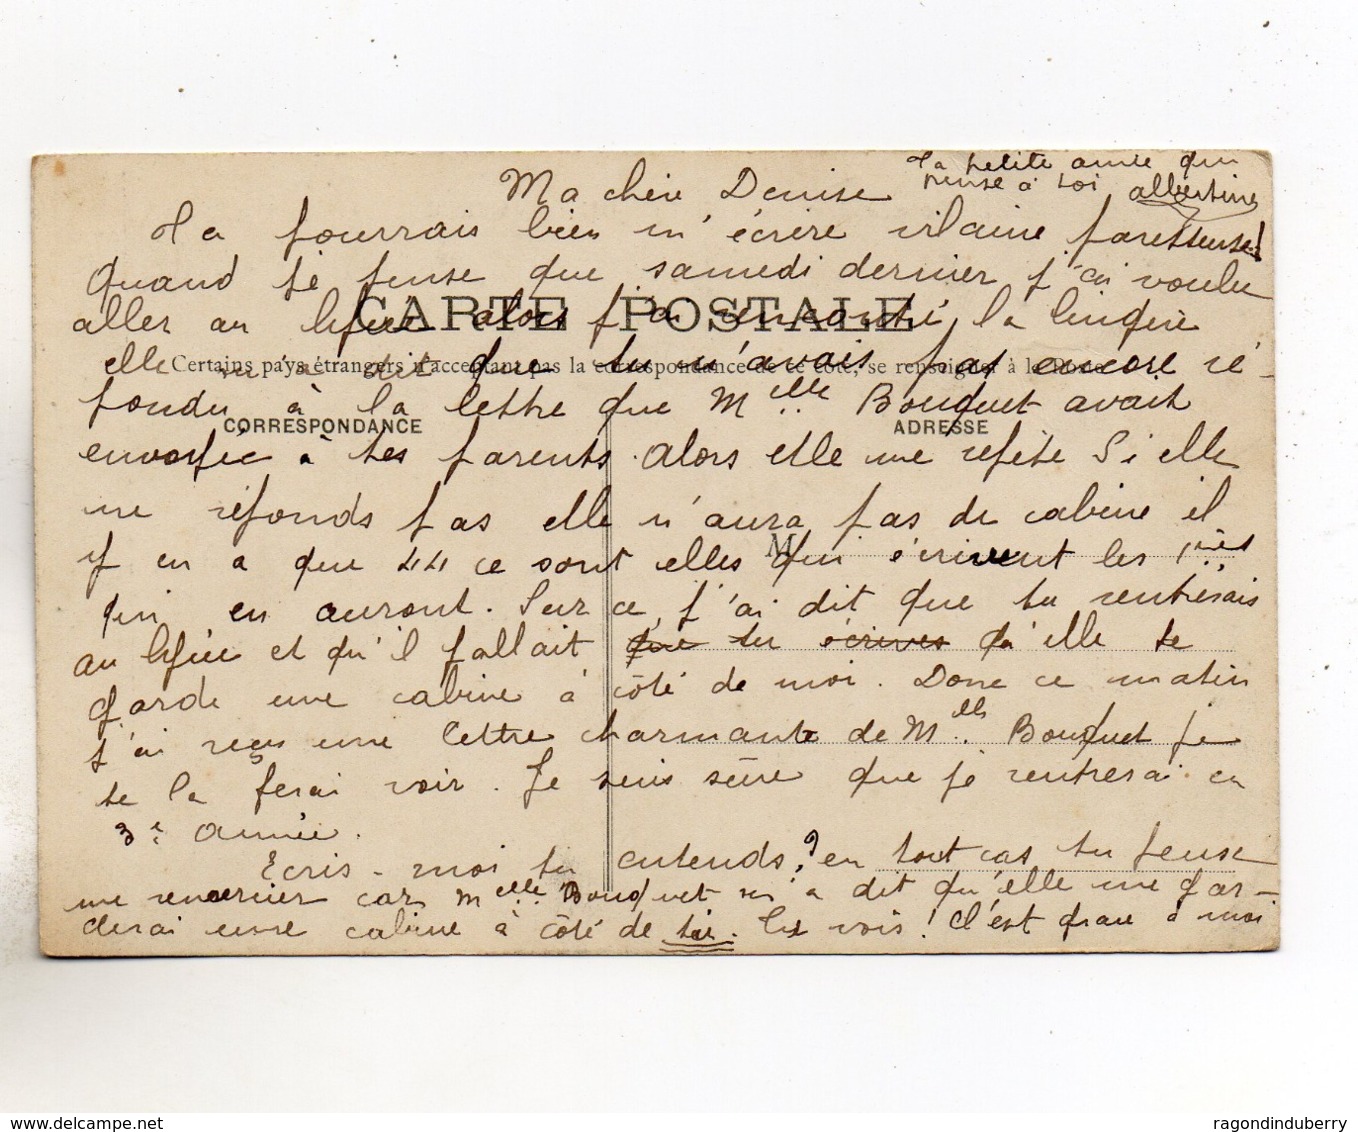 Ma chère Denise
Ta petite amie qui
pense à toi Albertine
Ta pourrais bien m'écrire vilaine paresseuse!
Quand je pense que samedi dernier j'ai voulu
aller au lycée alors j'ai rencontré la lingère
CARTE POSTALE
elle m'a dit que tu n'avais pas encore ré-
Certains pays étrangers n'acceptant pas la correspondance de ce côté, se renseigner à la Poste
pondu à la lettre que Melle Bouquet avait
CORRESPONDANCE
ADRESSE
envoyée à tes parents. Alors elle me répète Si elle
ne réponds pas elle n'aura pas de cabine il
M
y en a que 44 ce sont elles qui écrivent les 1ères
qui en auront. Sur ce j'ai dit que tu rentrerais
au lycée et qu'il fallait que tu écrives qu'elle te
garde une cabine à côté de moi. Donc ce matin
j'ai reçu une lettre charmante de Melle Bouquet je
te la ferai voir. Je suis sûre que je rentrerai en
3e année.
Ecris-moi tu entends? en tout cas tu peux
me remercier car Melle Bouquet m'a dit qu'elle me gar-
derai une cabine à côté de toi. Tu vois! C'est grâce à moi
ragondinduberry / www.delcampe.net